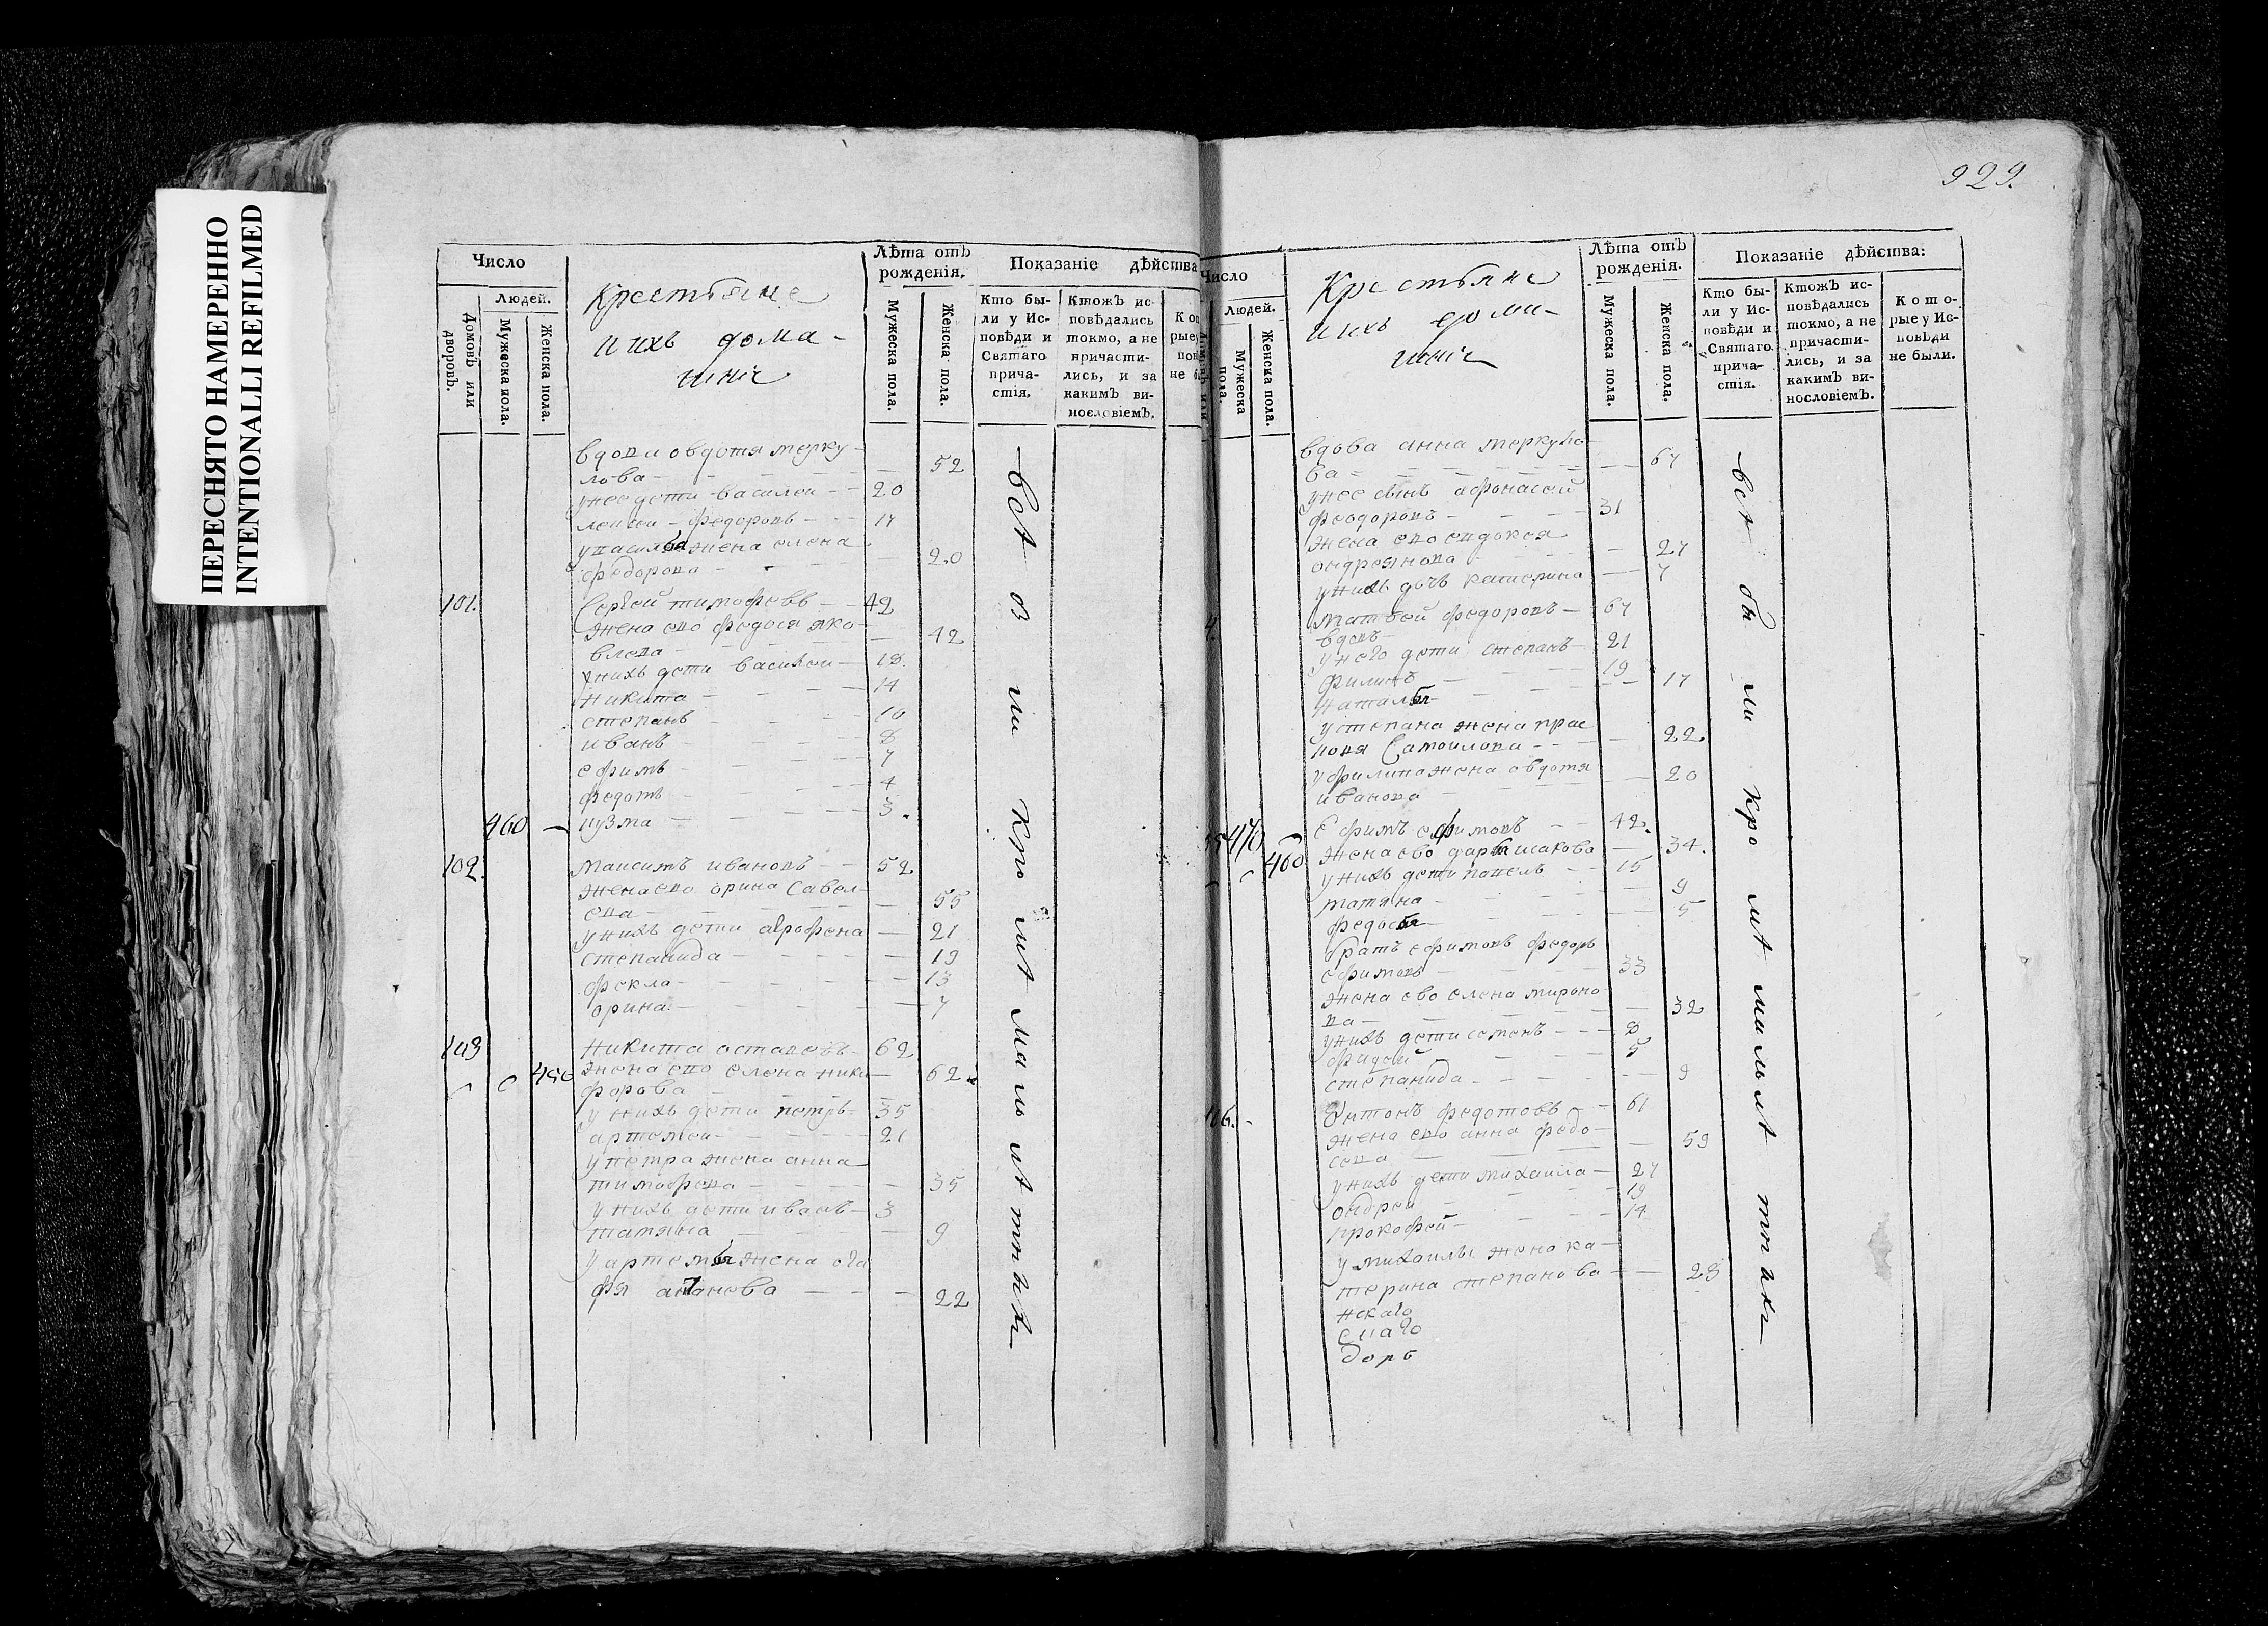 ПЕРЕСНЯТО НАМЕРЕННО
INTENTIONALLI REFILMED
Число
Людей.
Домовъ или дворовъ.
Мужеска пола.
Женска пола.
Крестьяне
и ихъ дома-
шнiе
Лѣта отъ
рожденiя.
Мужеска пола.
Женска пола.
Показанiе дѣйства
Кто бы-
ли у Ис-
повѣди и
Святаго
прича-
стiя.
Ктожъ ис-
повѣдались
токмо, а не
причасти-
лись, и за
какимъ ви-
нословiемъ.
вдова овдотя мерку
лова - 52
унее дети василеи - 20
федоровъ - 17
жена елена
федорова - 20
101. Сергеи тимофеевъ - 42
жена ево федося яко
влева - 42
унихъ дети василеи - 18.
никита - 14
степанъ - 10
иванъ - 8
ефимъ - 7
федотъ - 4
460 кузма - 3.
102. максимъ ивановъ - 52
жена ево орина савел
ева - 55
унихъ дети агрофена - 21
степанида - 19
фекла - 13
орина - 7
103 никита остаповъ - 62
450 жена ево елена ники
форова - 62
унихъ дети петръ - 35
артемеи - 21
упетра жена анна
тимофева - 35
унихъ дети иванъ - 3
татяна - 9
уартемья жена ога
фя антонова - 22
всѣ бы ли кро мѣ ма лы лѣ тныхъ
929.
Число
Людей.
Мужеска пола.
Женска пола.
Крестьяне
и ихъ дома-
шнiе
Лѣта отъ
рожденiя.
Мужеска пола.
Женска пола.
Показанiе дѣйства:
Кто бы-
ли у Ис-
повѣди и
Святаго
прича-
стiя.
Ктожъ ис-
повѣдались
токмо, а не
причасти-
лись, и за
какимъ ви-
нословiемъ.
Кото-
рые у Ис-
повѣди
не были.
вдова анна меркуло
ва - 67
унее сынъ афонасеи
феодоровъ - 31
жена ево евдокея
ондреянова - 27
унихъ дочь катерина - 7
матвеи федоровъ - 67
вдовъ
унего дети степанъ - 21
филипъ - 19
наталья - 17
устепана жена прас
ковя Самоилова - 22.
уфилипа жена овдотя
иванова - 20
470 Ефимъ ефимовъ - 42.
460 жена ево дарья исакова - 34.
унихъ дети павелъ - 15
татяна - 9
федосья - 5
братъ ефимовъ федоръ
ефимовъ - 33
жена ево елена мироно
ва - 32
унихъ дети семенъ - 8
фадеи - 5
степанида - 9
Антонъ федотовъ - 61
жена ево анна федо
сова - 59
унихъ дети михаила - 27
ондреи - 19
прокофеи - 14
умихаилы жена ка
терина степанова - 28
нскаго
скаго
доръ
всѣ бы ли кро мѣ ма лы лѣ тныхъ